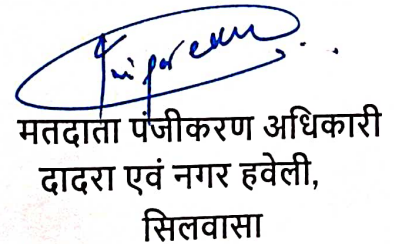 मतदाता पंजीकरण अधिकारी
दादरा एवं नगर हवेली,
सिलवासा